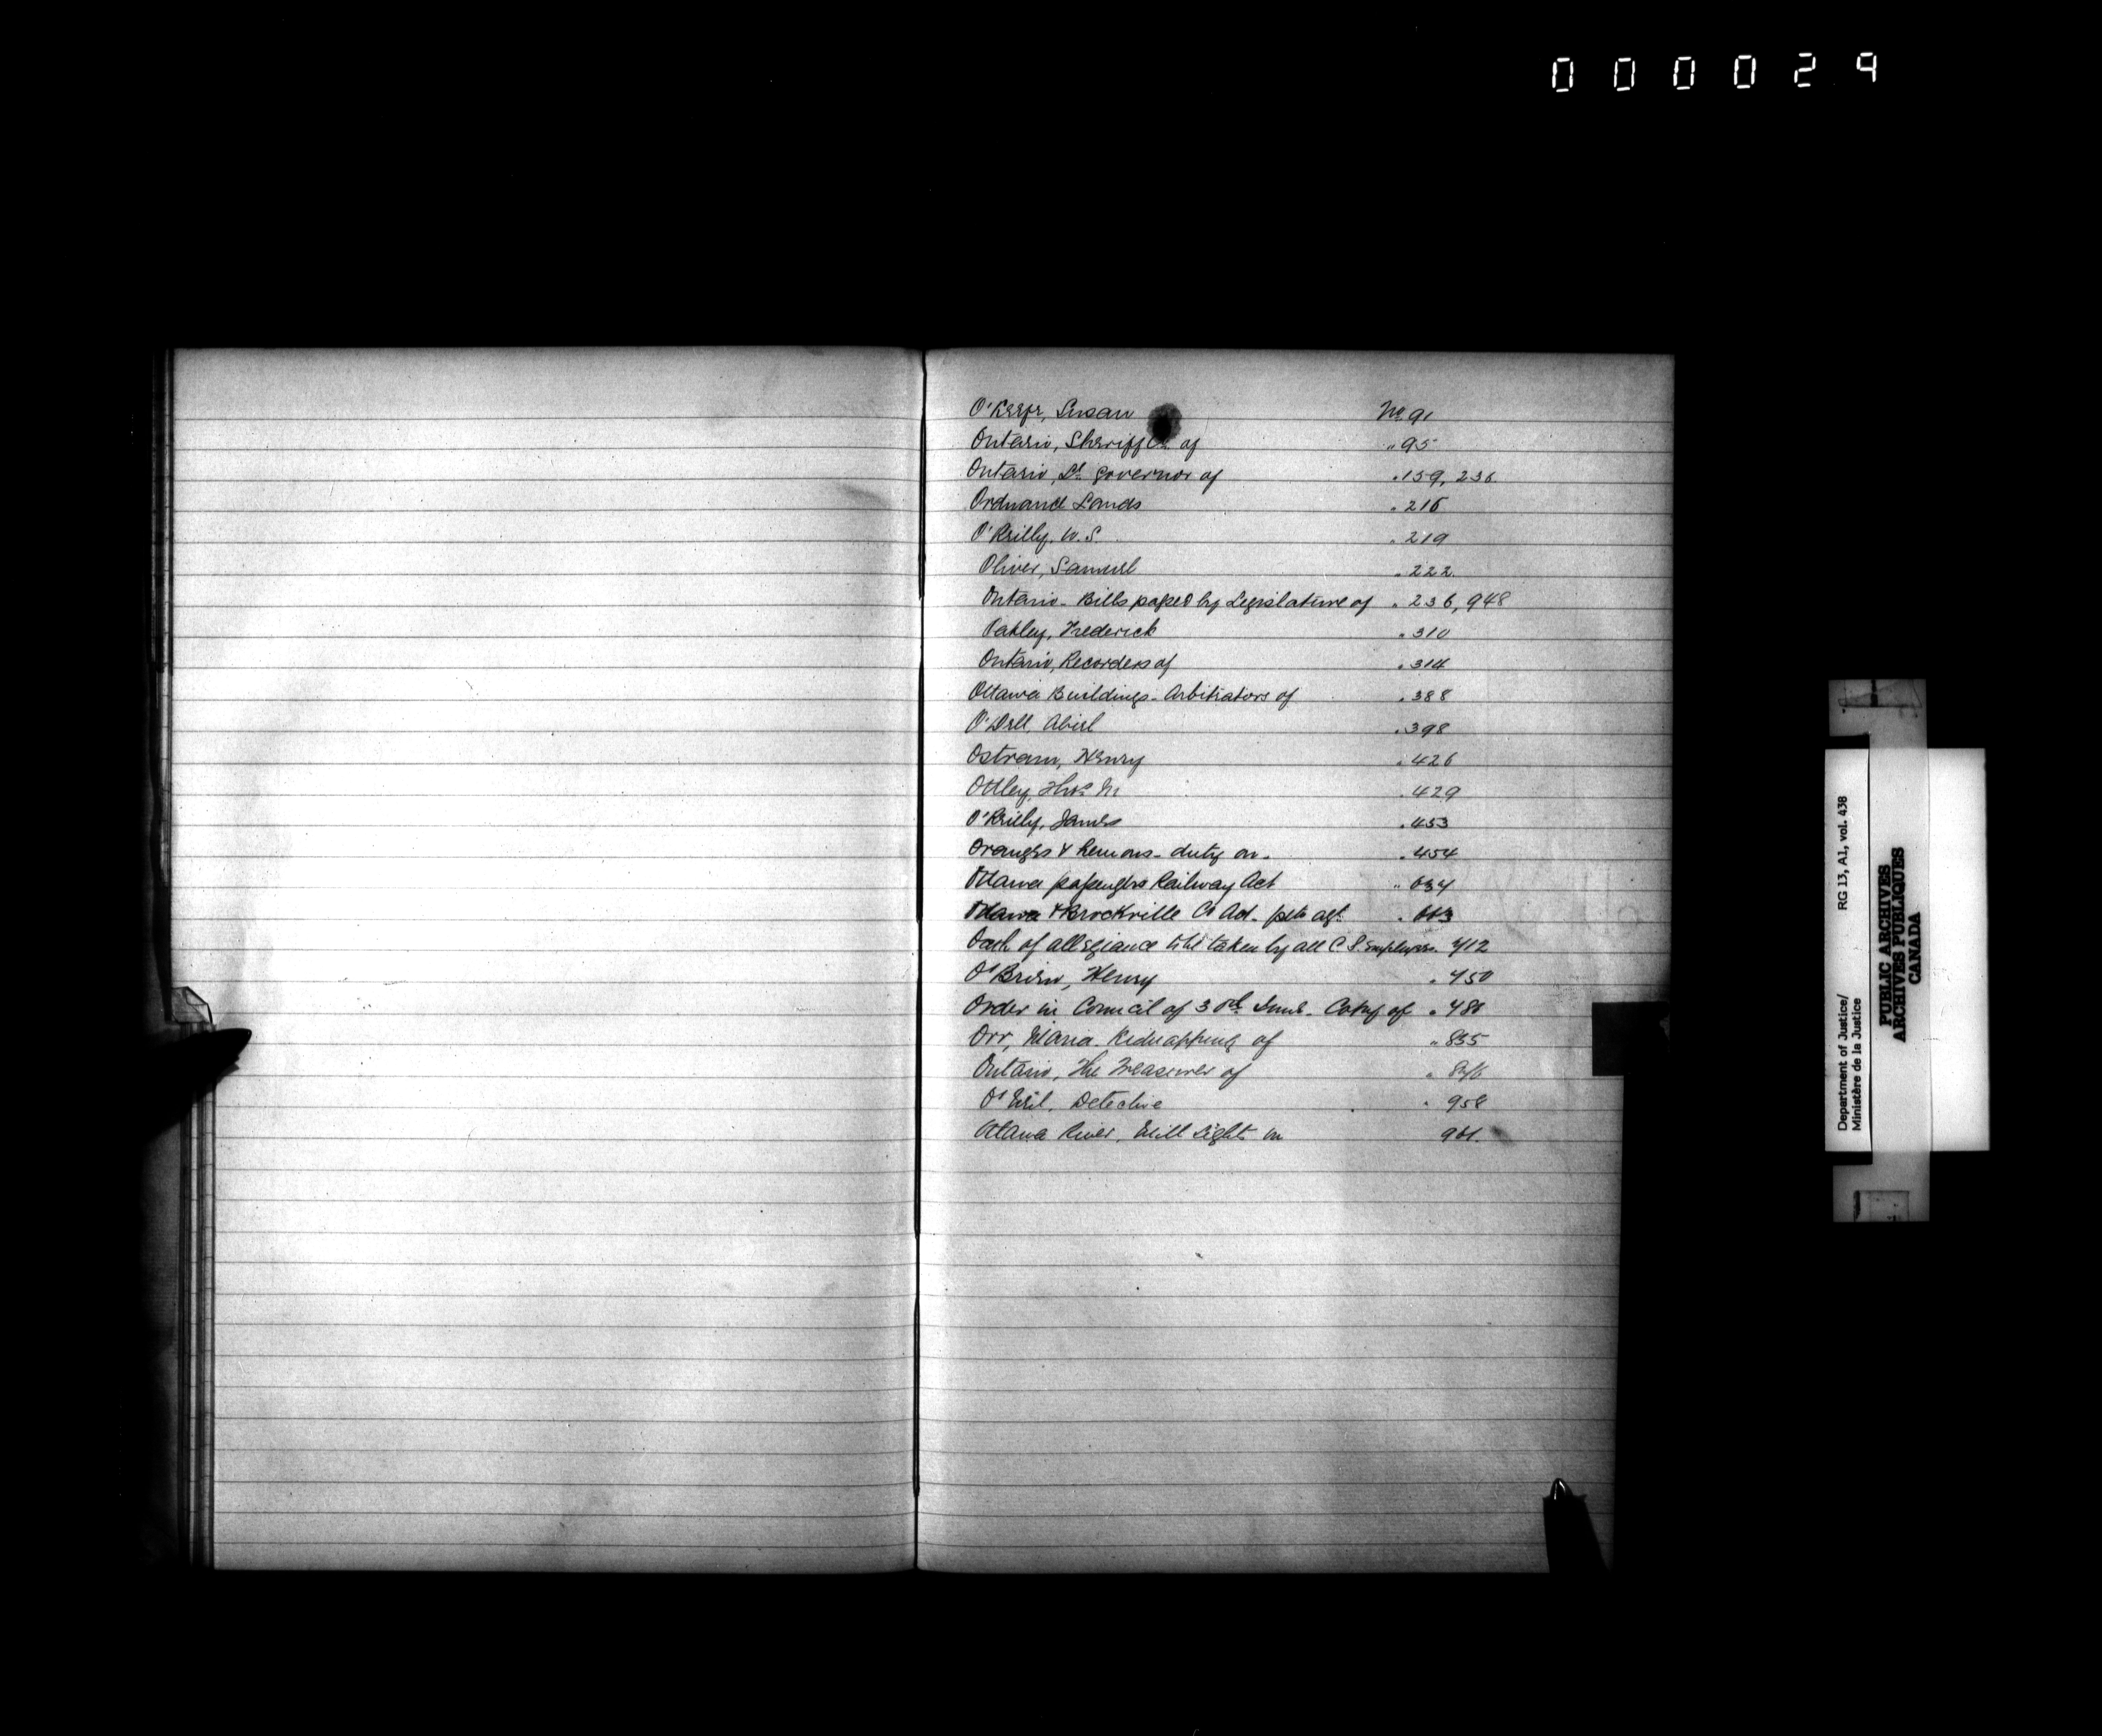 000029
O'Keefe, Susan No. 91
Ontario, Sheriff Co. of " 95
Ontario, Lt. Governor of " 159, 236.
Ordnance Lands " 216
O'Reilly, W.S. " 219
Oliver, Samuel " 222.
Ontario - Bills passed by Legislature of " 236, 948
Oakley, Frederick " 310
Ontario, Recorders of " 314
Ottawa Buildings - Arbitrators of " 388
O'Dell, Abiel " 398
Ostram, Henry " 426
Ottley, Thos. " 429
O'Reilly, James " 453
Oranges & Lemons - duty on - " 454
Ottawa passengers Railway Act " 634
Ottawa & Brockville Co Act - petn agt. "
Oath of allegiance to be taken by all C.S. Employees. 712
O'Brien, Henry " 750
Order in Council of 3rd - Copy of "
Orr, Maria - Kidnapping of " 835
Ontario, The Treasurer of "
O'Neil, Detective " 958
Ottawa River, Mill Sights on
Department of Justice/ RG 13, A1, vol. 438
Ministère de la Justice
PUBLIC ARCHIVES
ARCHIVES PUBLIQUES
CANADA